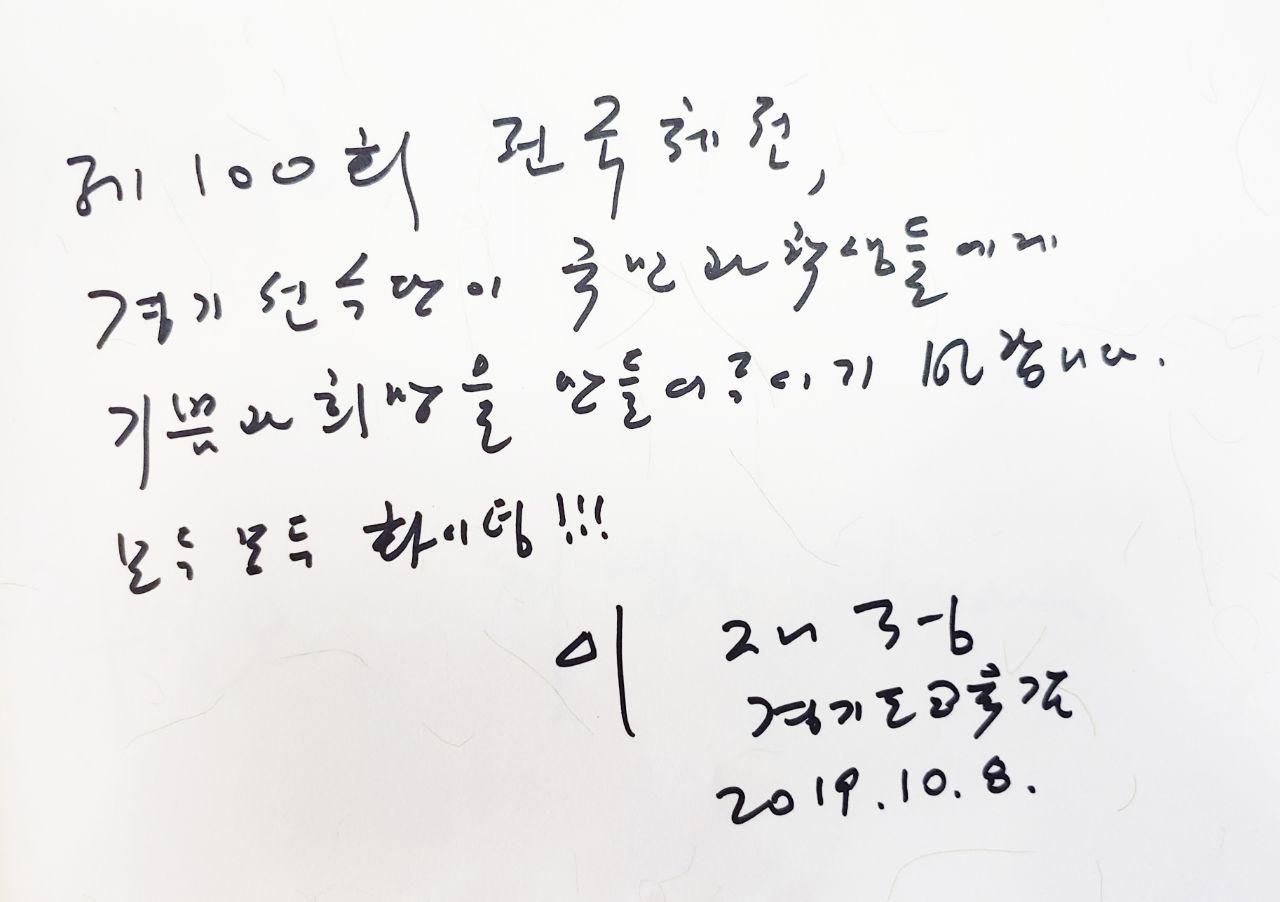 제 100회 전국체전,
경기 선수단이 국민과 학생들에게
기쁨과 희망을 만들어주시기 바랍니다.
모두 모두 화이팅!!!
이 재정
경기도교육감
2019.10.8.